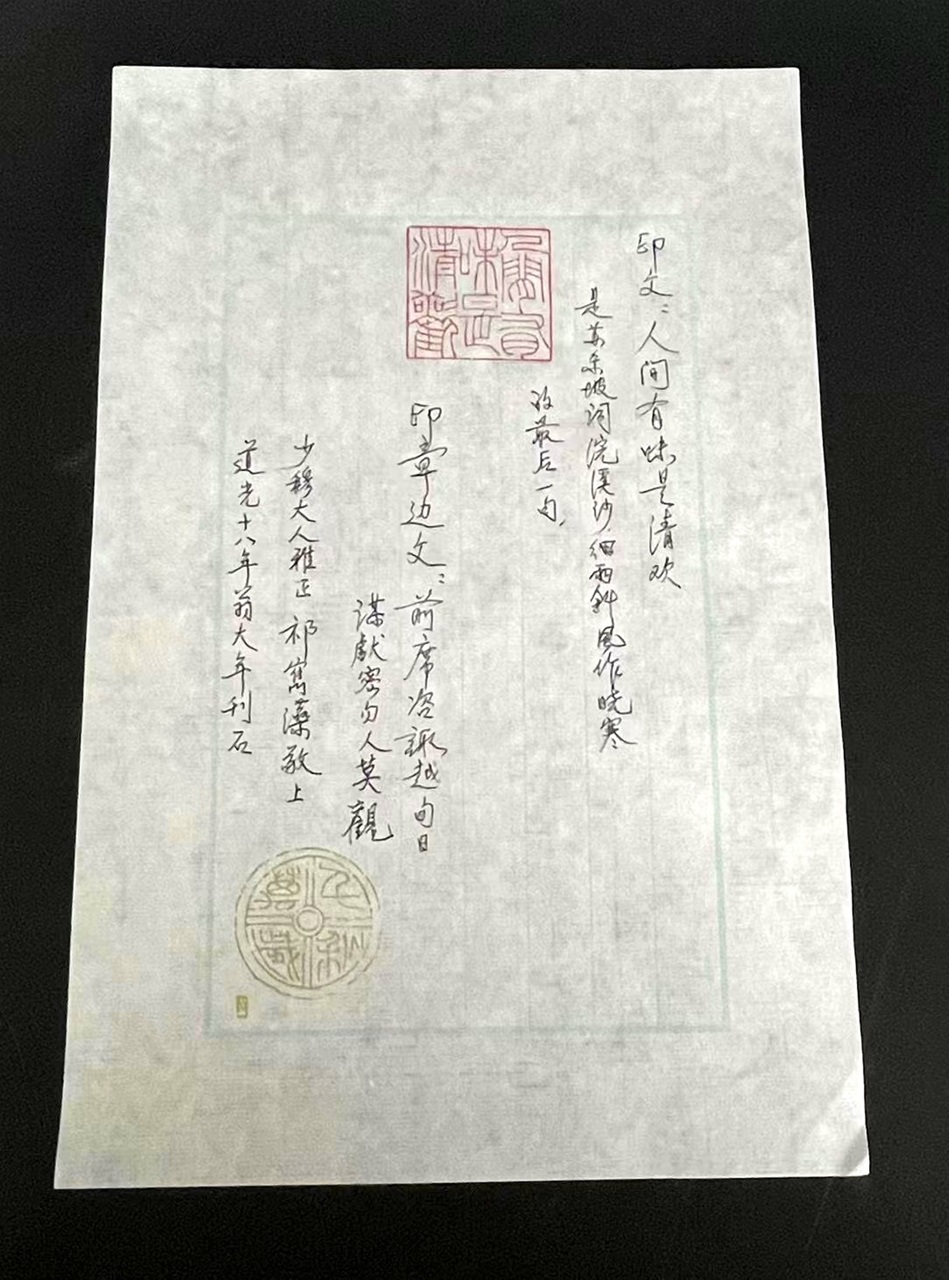 印文：人间有味是清欢
是苏东坡词浣溪沙·细雨斜风作晓寒
的最后一句，
有
味是
清歡
印章边文：前席咨諏越旬日
谋獻密勿人莫觀
少穆大人雅正 祁寯藻敬上
道光十八年翁大年刊石